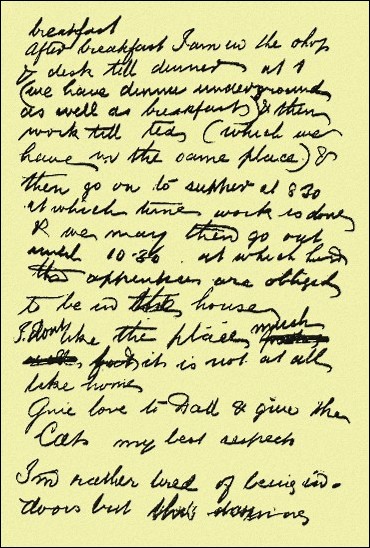 breakfast
After breakfast I am in the shop
& desk till dinner at 1
(we have dinner underground
as well as breakfast) & then
work till tea (which we
have in the same place) &
then go on to supper at 8 30
at which time work is done
& we may then go out
until 10.30 at which
the apprentices are obliged
to be in the house
I dont like the place much
for it is not at all
like home
Give love to Dad & give the
Cats my best respects
I'm rather tired of being in-
doors but